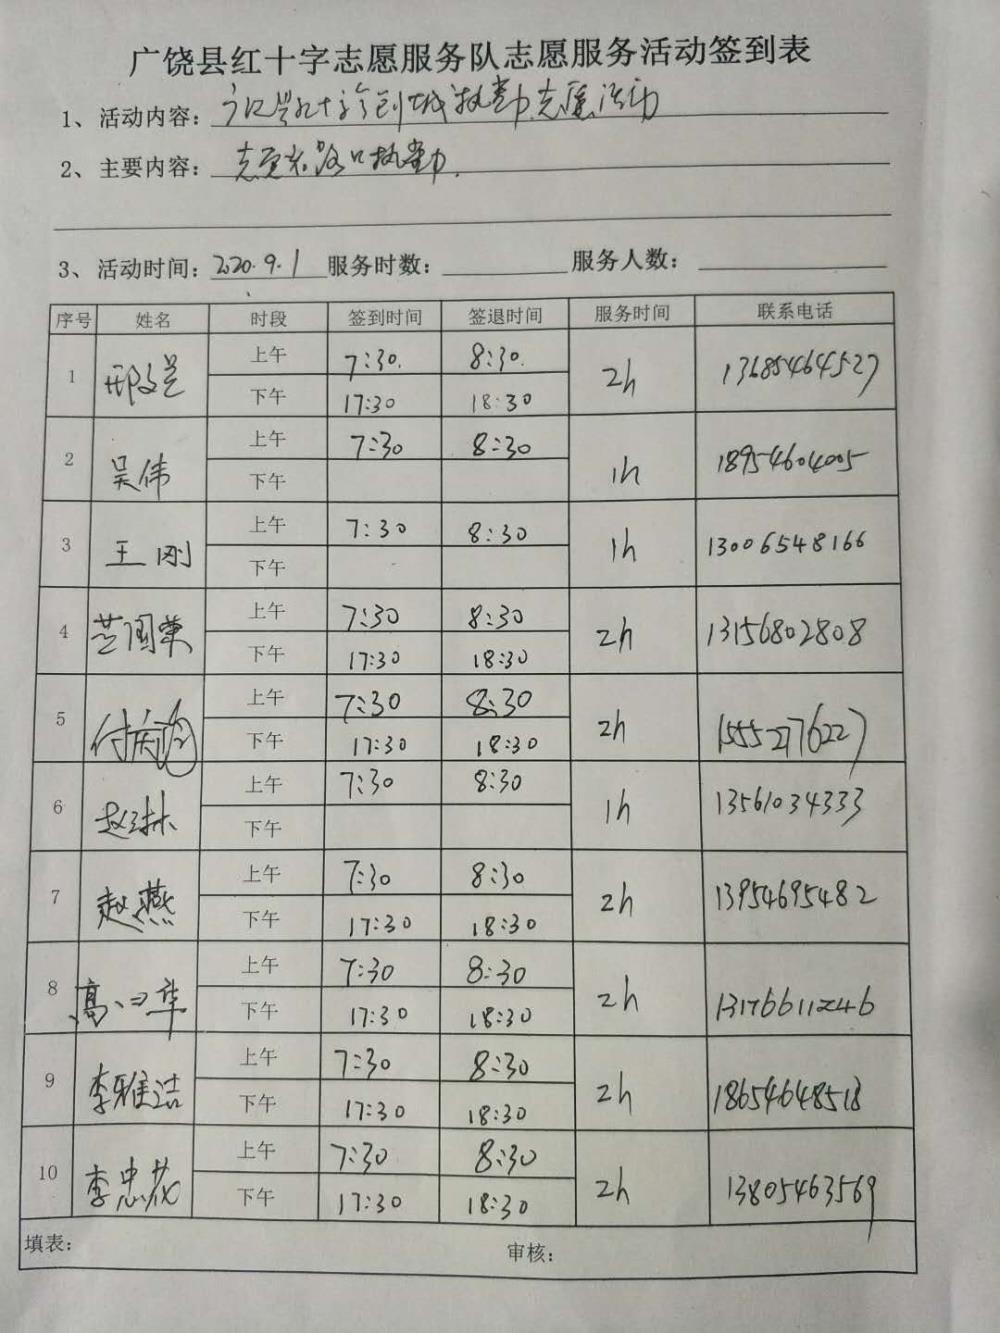 广饶县红十字志愿服务队志愿服务活动签到表
1、活动内容: 创城执勤志愿活动
2、主要内容: 志愿者路口执勤.
3、活动时间: 2020.9.1 服务时数: 服务人数:
序号 姓名 时段 签到时间 签退时间 服务时间 联系电话
1 上午 7:30. 8:30. 2h 13685464527
下午 17:30 18:30
2 吴伟 上午 7:30 8:30 1h 18954604005
下午
3 王刚 上午 7:30 8:30 1h 13006548166
下午
4 上午 7:30 8:30 2h 13156802808
下午 17:30 18:30
5 上午 7:30 8:30 2h 15552776227
下午 17:30 18:30
6 赵琳 上午 7:30 8:30 1h 13561034333
下午
7 赵燕 上午 7:30 8:30 2h 13954695482
下午 17:30 18:30
8 上午 7:30 8:30 2h 13176611246
下午 17:30 18:30
9 李雅洁 上午 7:30 8:30 2h 18654648518
下午 17:30 18:30
10 李忠花 上午 7:30 8:30 2h 13805463569
下午 17:30 18:30
填表: 审核: